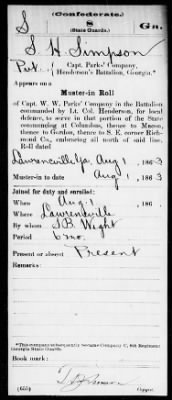 (Confederate.)
S 8 Ga.
(State Guards.)
S H Simpson
Pvt. Capt. Parks' Company,
Henderson's Battalion, Georgia.*
Appears on a
Muster-in Roll
of Capt. W. W. Parks' Company in the Battalion
commanded by Lt. Col. Henderson, for local
defence, to serve in that portion of the State
commencing at Columbus, thence to Macon,
thence to Gordon, thence to S. E. corner Rich-
mond Co., embracing all north of said line.
Roll dated
Lawrenceville Ga, Aug 1, 1863
Muster-in to date Aug 1, 1863
Joined for duty and enrolled:
When Aug 1, 186
Where Lawrenceville
By whom J.B. Wight
Period 6 mo.
Present or absent Present
Remarks:
*This company subsequently became Company C, 8th Regiment
Georgia State Guards.
Book mark:
(655) Copyist.